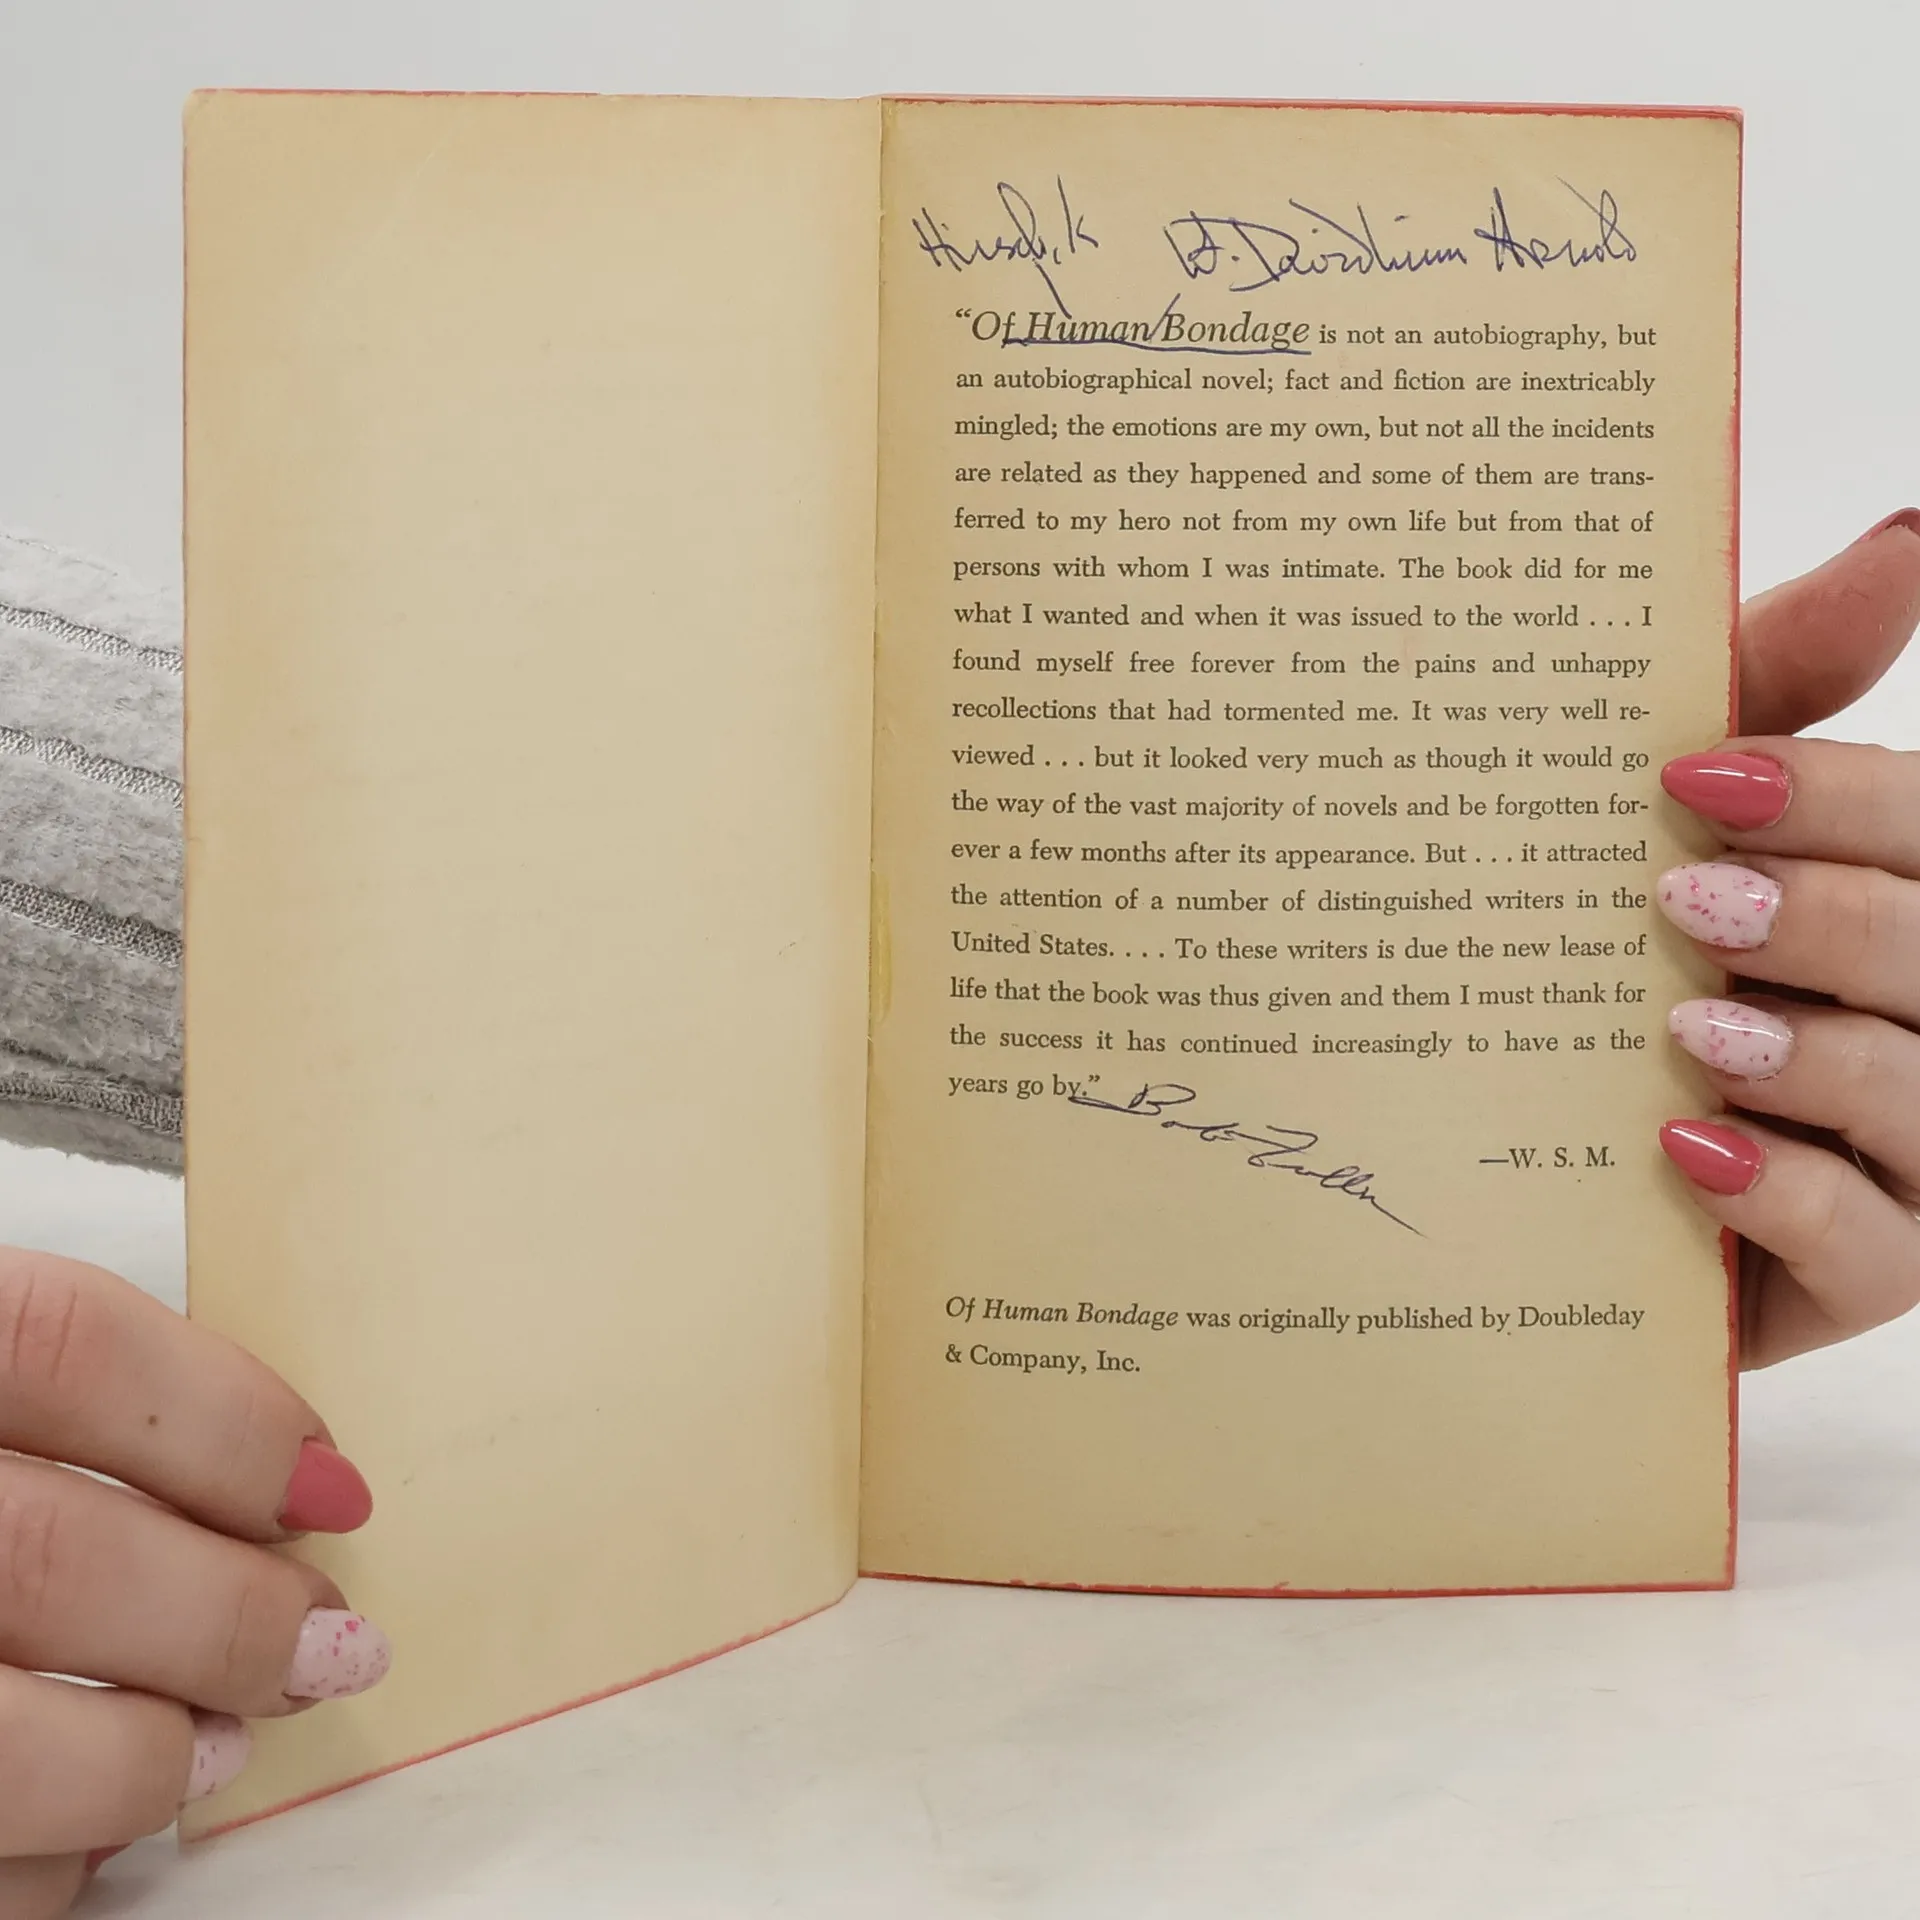 "Of Human Bondage is not an autobiography, but
an autobiographical novel; fact and fiction are inextricably
mingled; the emotions are my own, but not all the incidents
are related as they happened and some of them are trans-
ferred to my hero not from my own life but from that of
persons with whom I was intimate. The book did for me
what I wanted and when it was issued to the world . . . I
found myself free forever from the pains and unhappy
recollections that had tormented me. It was very well re-
viewed . . . but it looked very much as though it would go
the way of the vast majority of novels and be forgotten for-
ever a few months after its appearance. But . . . it attracted
the attention of a number of distinguished writers in the
United States. . . . To these writers is due the new lease of
life that the book was thus given and them I must thank for
the success it has continued increasingly to have as the
years go by."
Bob
—W. S. M.
Of Human Bondage was originally published by Doubleday
& Company, Inc.